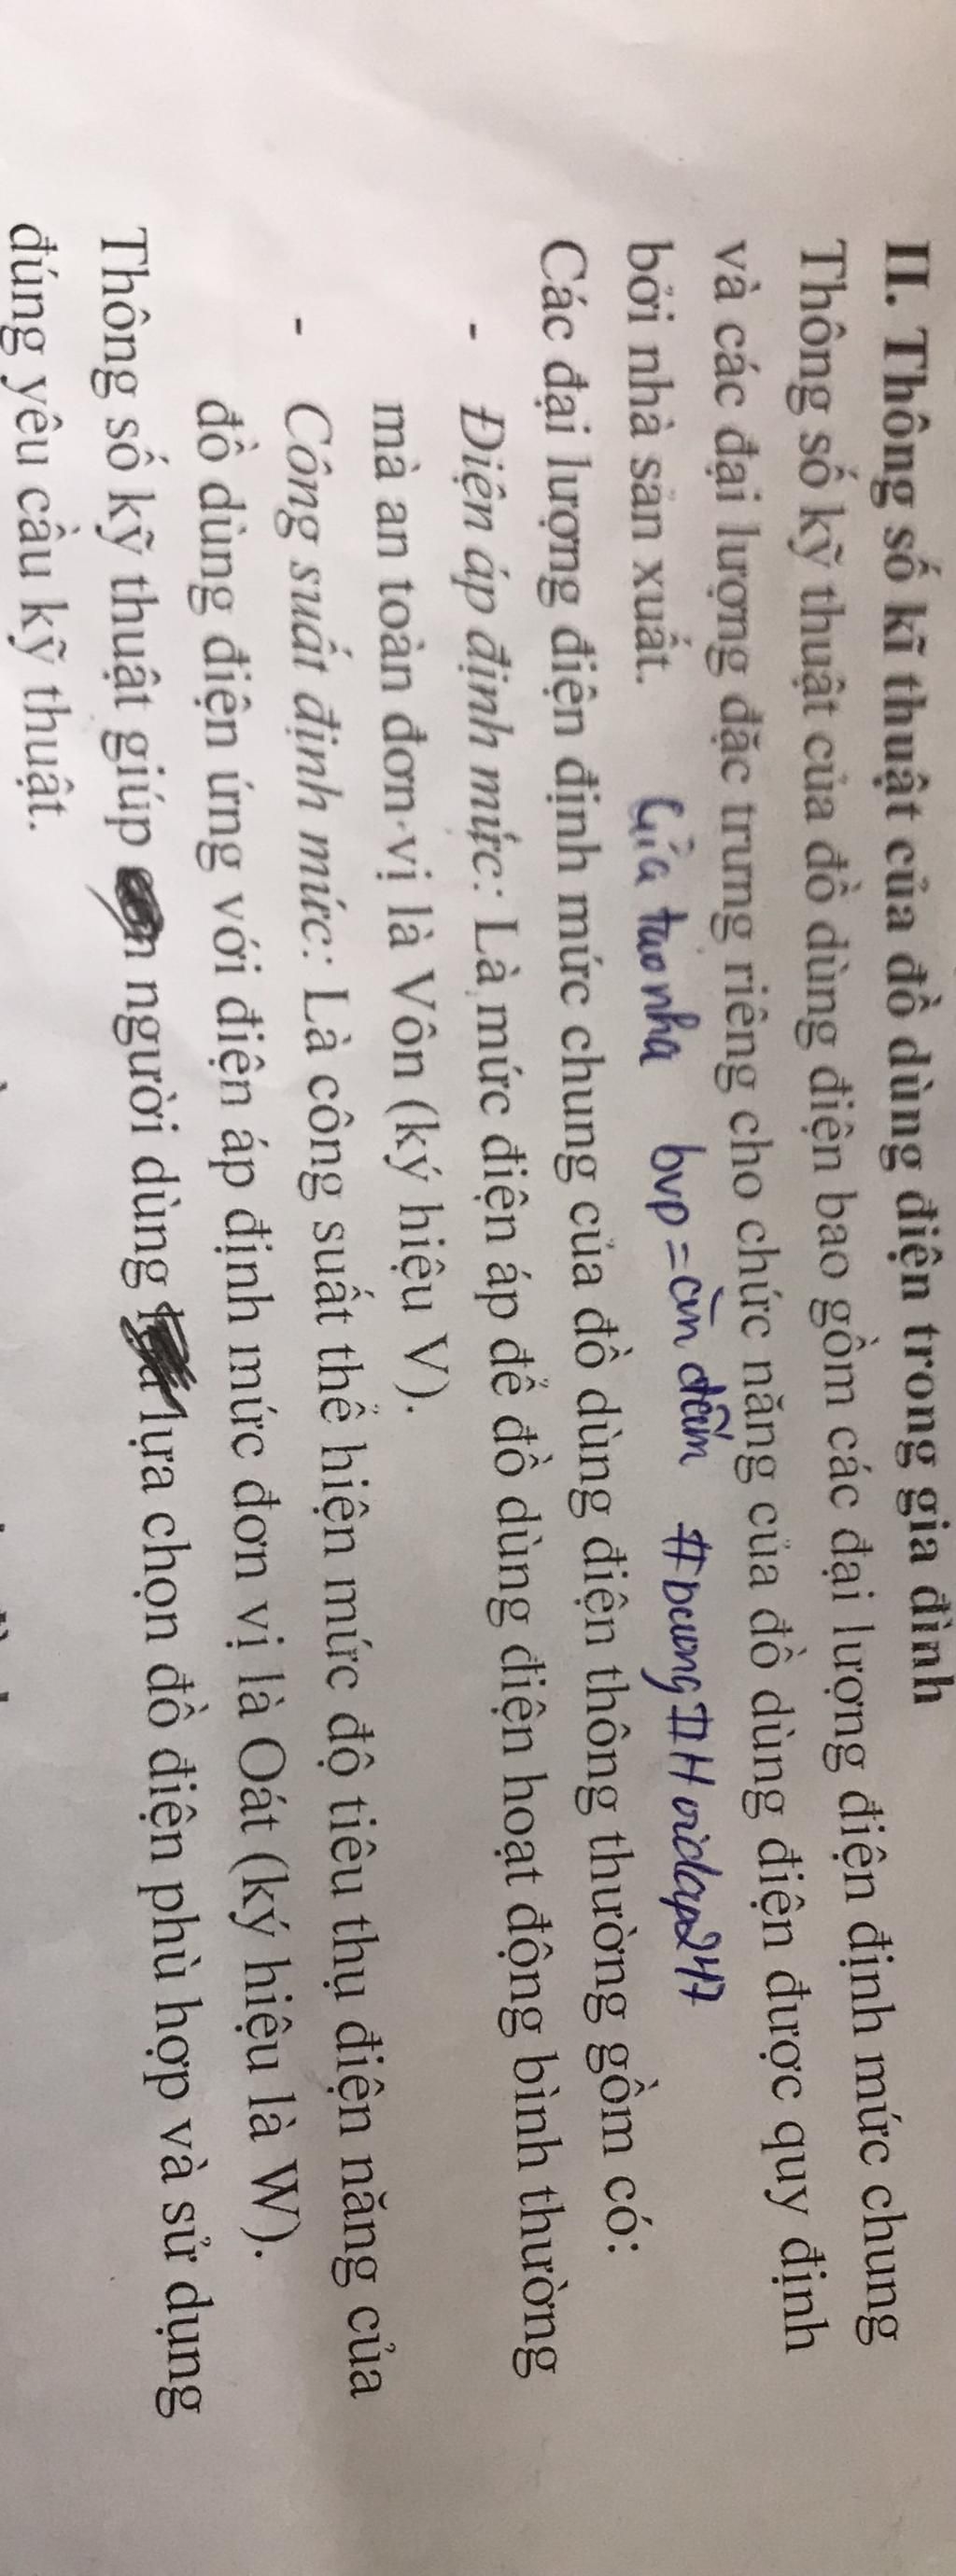 II. Thông số kĩ thuật của đồ dùng điện trong gia đình
Thông số kỹ thuật của đồ dùng điện bao gồm các đại lượng điện định mức chung
và các đại lượng đặc trưng riêng cho chức năng của đồ dùng điện được quy định
bởi nhà sản xuất.
bvp =
Các đại lượng điện định mức chung của đồ dùng điện thông thường gồm có:
- Điện áp định mức: Là mức điện áp để đồ dùng điện hoạt động bình thường
mà an toàn đơn vị là Vôn (ký hiệu V).
- Công suất định mức: Là công suất thể hiện mức độ tiêu thụ điện năng của
đồ dùng điện ứng với điện áp định mức đơn vị là Oát (ký hiệu là W).
Thông số kỹ thuật giúp người dùng lựa chọn đồ điện phù hợp và sử dụng
đúng yêu cầu kỹ thuật.